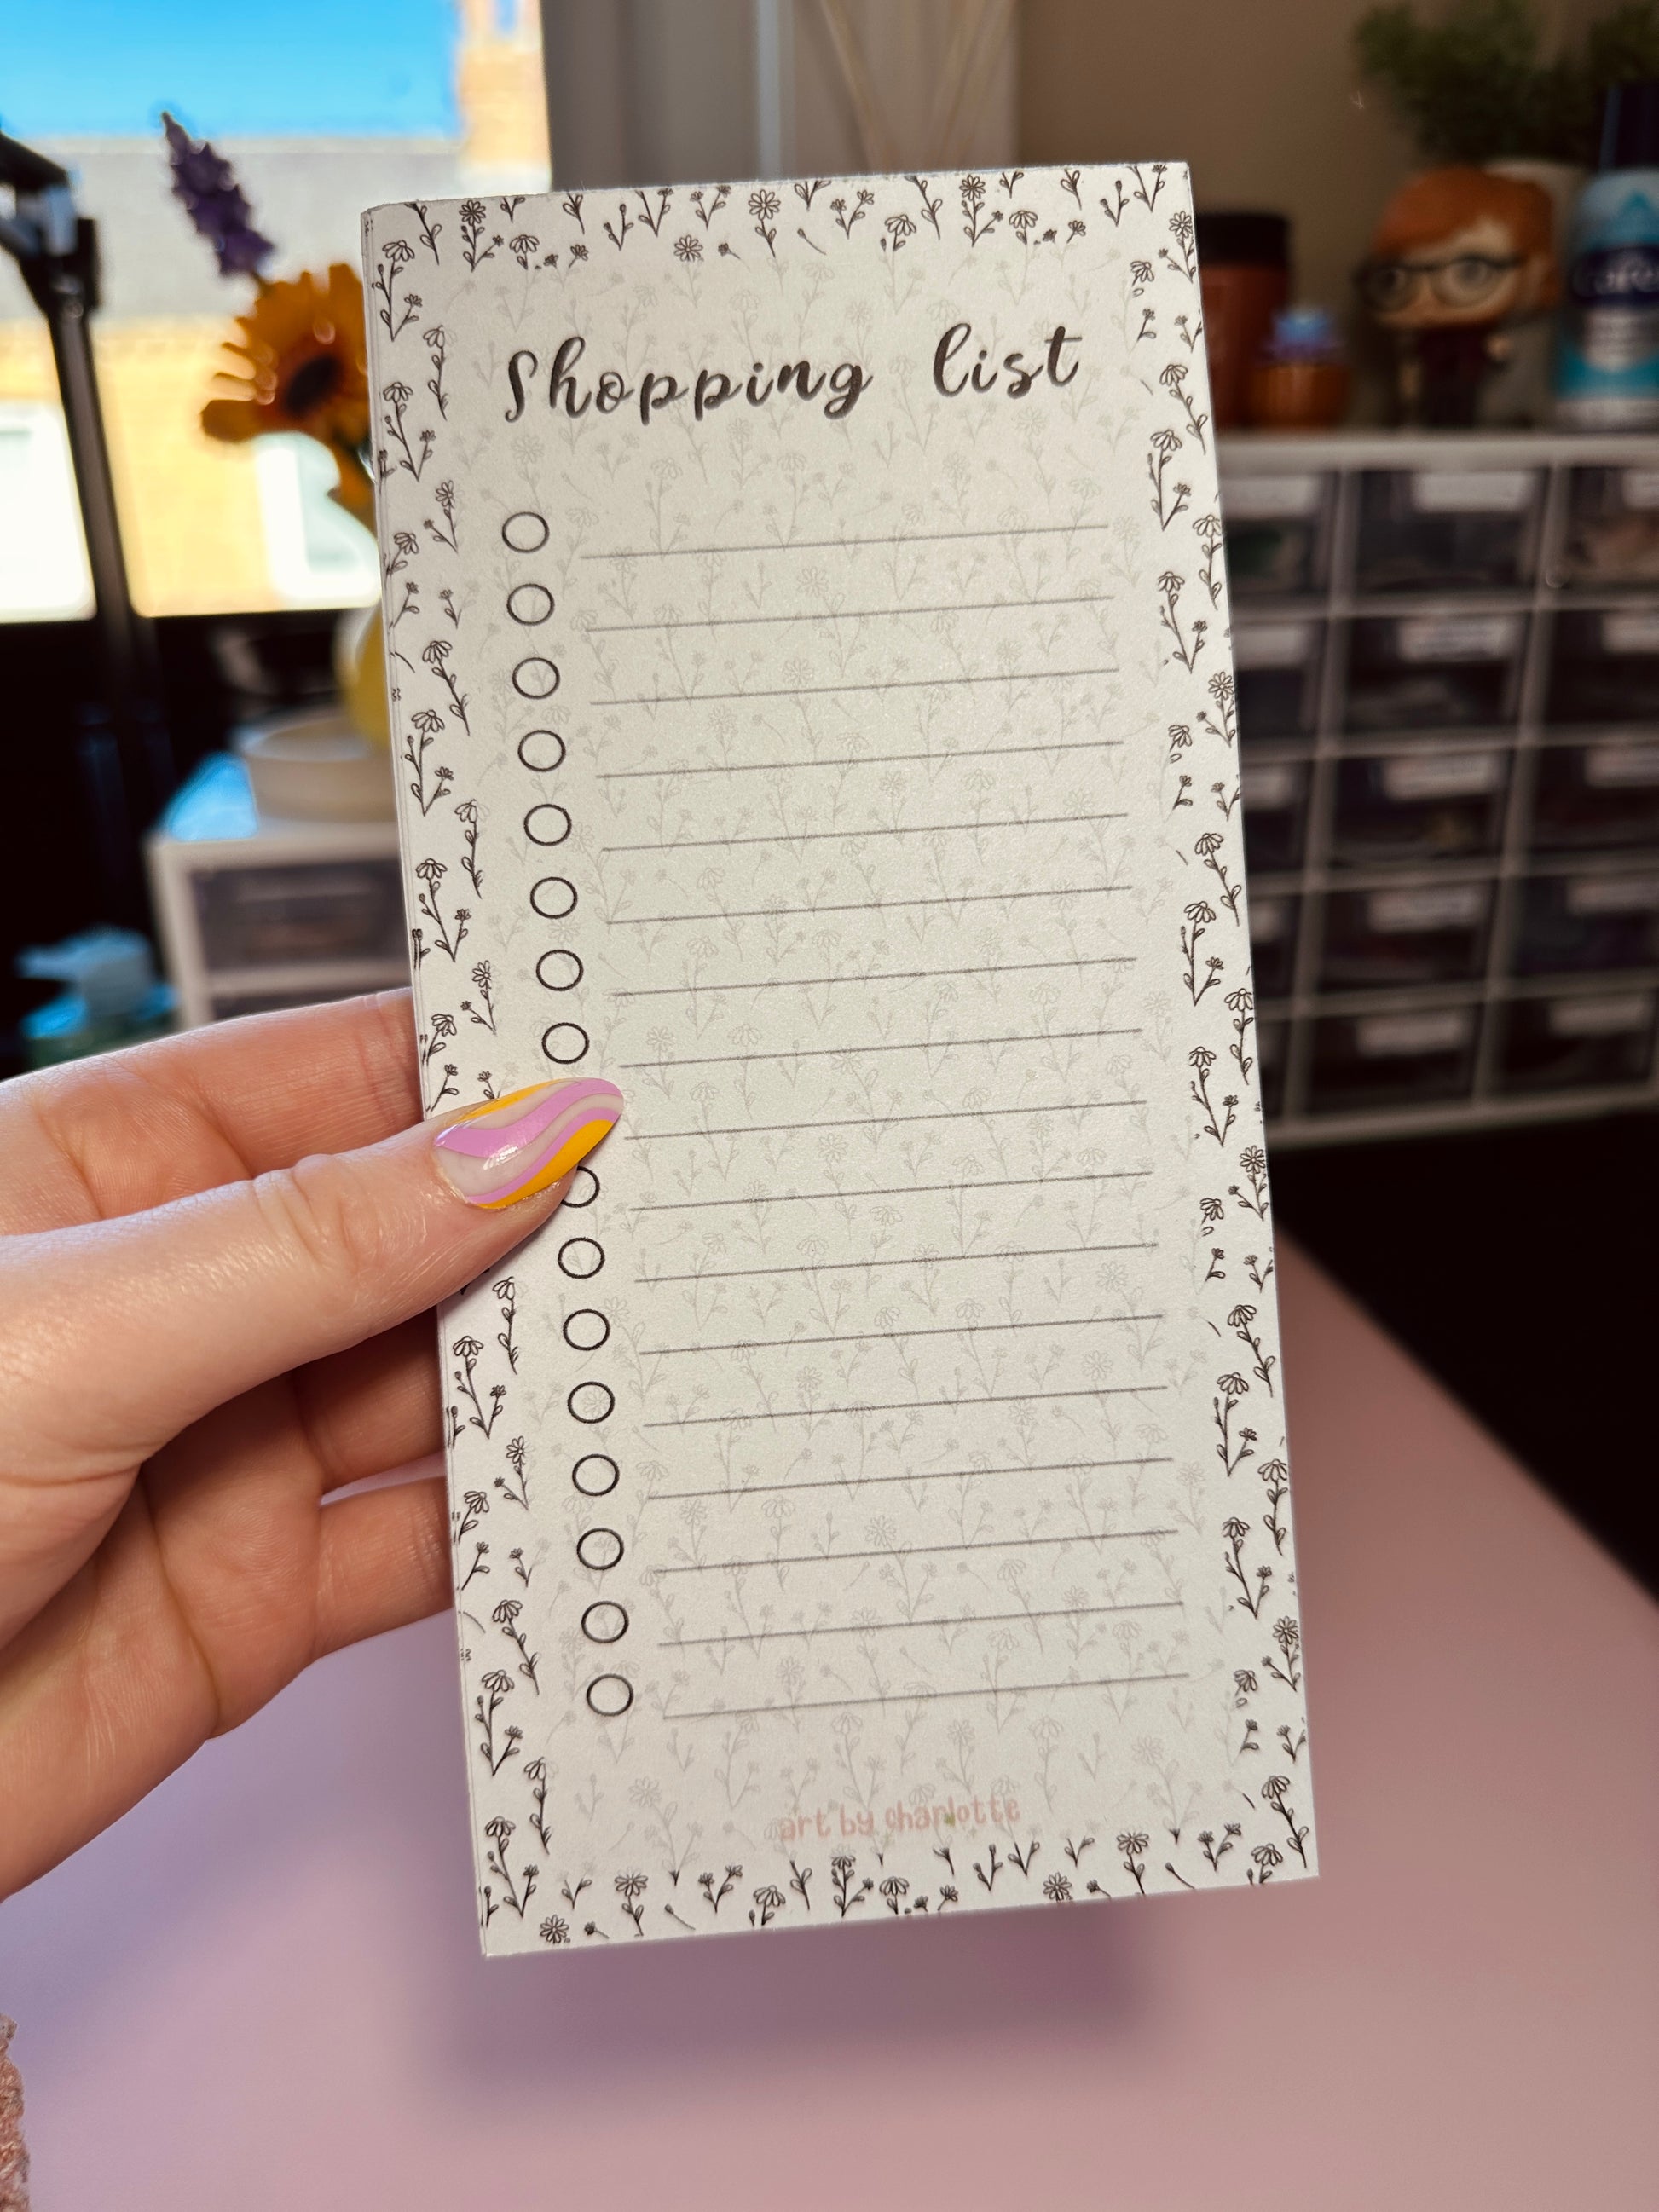 Shopping list
art by charlotte